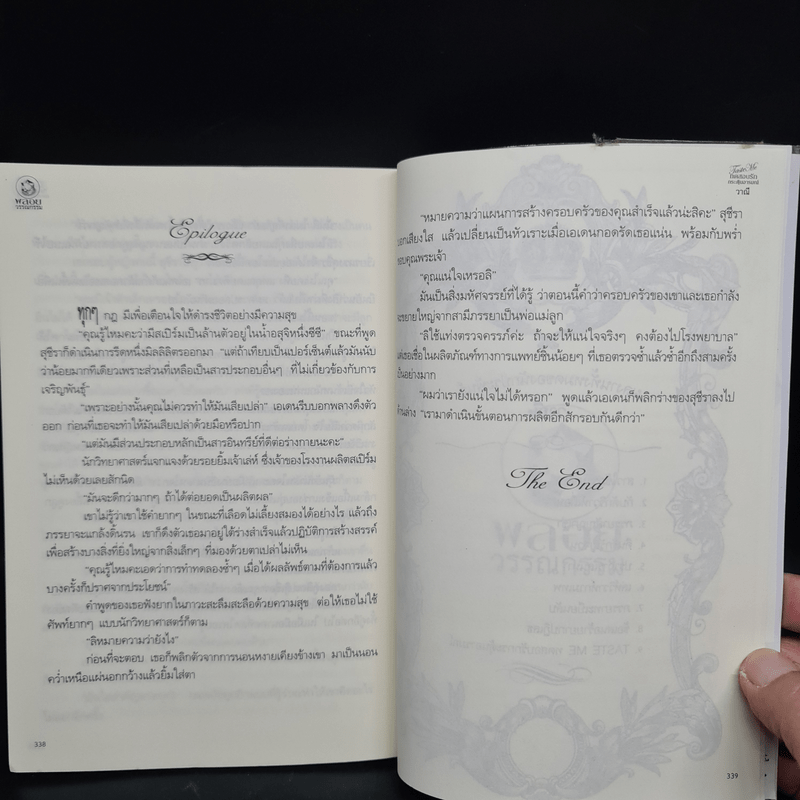 พลอย
วรรณกรรม
Epilogue
ทุกๆ กฎ มีเพื่อเตือนใจให้ดำรงชีวิตอย่างมีความสุข
“คุณรู้ไหมคะว่ามีสเปิร์มเป็นล้านตัวอยู่ในน้ำอสุจิหนึ่งซีซี” ขณะที่พูด
สุชีราก็ดำเนินการรีดหนึ่งมิลลิลิตรออกมา “แต่ถ้าเทียบเป็นเปอร์เซ็นต์แล้วมันนับ
ว่าน้อยมากทีเดียวเพราะส่วนที่เหลือเป็นสารประกอบอื่นๆ ที่ไม่เกี่ยวข้องกับการ
เจริญพันธุ์”
“เพราะอย่างนั้นคุณไม่ควรทำให้มันเสียเปล่า” เอเดนรีบบอกพลางดึงตัว
ออก ก่อนที่เธอจะทำให้มันเสียเปล่าด้วยมือหรือปาก
“แต่มันมีส่วนประกอบหลักเป็นสารอินทรีย์ที่ดีต่อร่างกายนะคะ”
นักวิทยาศาสตร์แจกแจงด้วยรอยยิ้มเจ้าเล่ห์ ซึ่งเจ้าของโรงงานผลิตสเปิร์ม
ไม่เห็นด้วยเลยสักนิด
“มันจะดีกว่ามากๆ ถ้าได้ต่อยอดเป็นผลิตผล”
เขาไม่รู้ว่าเขาใช้คำยากๆ ในขณะที่เลือดไม่เลี้ยงสมองได้อย่างไร แล้วถึง
ภรรยาจะแกล้งดิ้นรน เขาก็ดึงตัวเธอมาอยู่ใต้ร่างสำเร็จแล้วปฏิบัติการสร้างสรรค์
เพื่อสร้างบางสิ่งที่ยิ่งใหญ่จากสิ่งเล็กๆ ที่มองด้วยตาเปล่าไม่เห็น
“คุณรู้ไหมคะเอเดนว่าการทำทดลองซ้ำๆ เมื่อได้ผลลัพธ์ตามที่ต้องการแล้ว
บางครั้งก็ปราศจากประโยชน์”
คำพูดของเธอฟังยากในภาวะสะลึมสะลือด้วยความสุข ต่อให้เธอไม่ใช้
ศัพท์ยากๆ แบบนักวิทยาศาสตร์ก็ตาม
“ลิหมายความว่ายังไง”
ก่อนที่จะตอบ เธอก็พลิกตัวจากการนอนหงายเคียงข้างเขา มาเป็นนอน
คว่ำเหนือแผ่นอกกว้างแล้วยิ้มใส่ตา
338
Taste Me
วาณี
“หมายความว่าแผนการสร้างครอบครัวของคุณสำเร็จแล้วน่ะสิคะ” สุชีรา
บอกเสียงใส แล้วเปลี่ยนเป็นหัวเราะเมื่อเอเดนกอดรัดเธอแน่น พร้อมกับพร่ำ
ขอบคุณพระเจ้า
“คุณแน่ใจเหรอลิ”
มันเป็นสิ่งมหัศจรรย์ที่ได้รู้ ว่าตอนนี้คำว่าครอบครัวของเขาและเธอกำลัง
จะขยายใหญ่จากสามีภรรยาเป็นพ่อแม่ลูก
“ลิใช้แท่งตรวจครรภ์ค่ะ ถ้าจะให้แน่ใจจริงๆ คงต้องไปโรงพยาบาล”
แต่เธอเชื่อในผลิตภัณฑ์ทางการแพทย์ชิ้นน้อยๆ ที่เธอตรวจซ้ำแล้วซ้ำอีกถึงสามครั้ง
เป็นอย่างมาก
“ผมว่าเรายังแน่ใจไม่ได้หรอก” พูดแล้วเอเดนก็พลิกร่างของสุชีราลงไป
ด้านล่าง “เรามาดำเนินขั้นตอนการผลิตอีกสักรอบกันดีกว่า”
The End
339